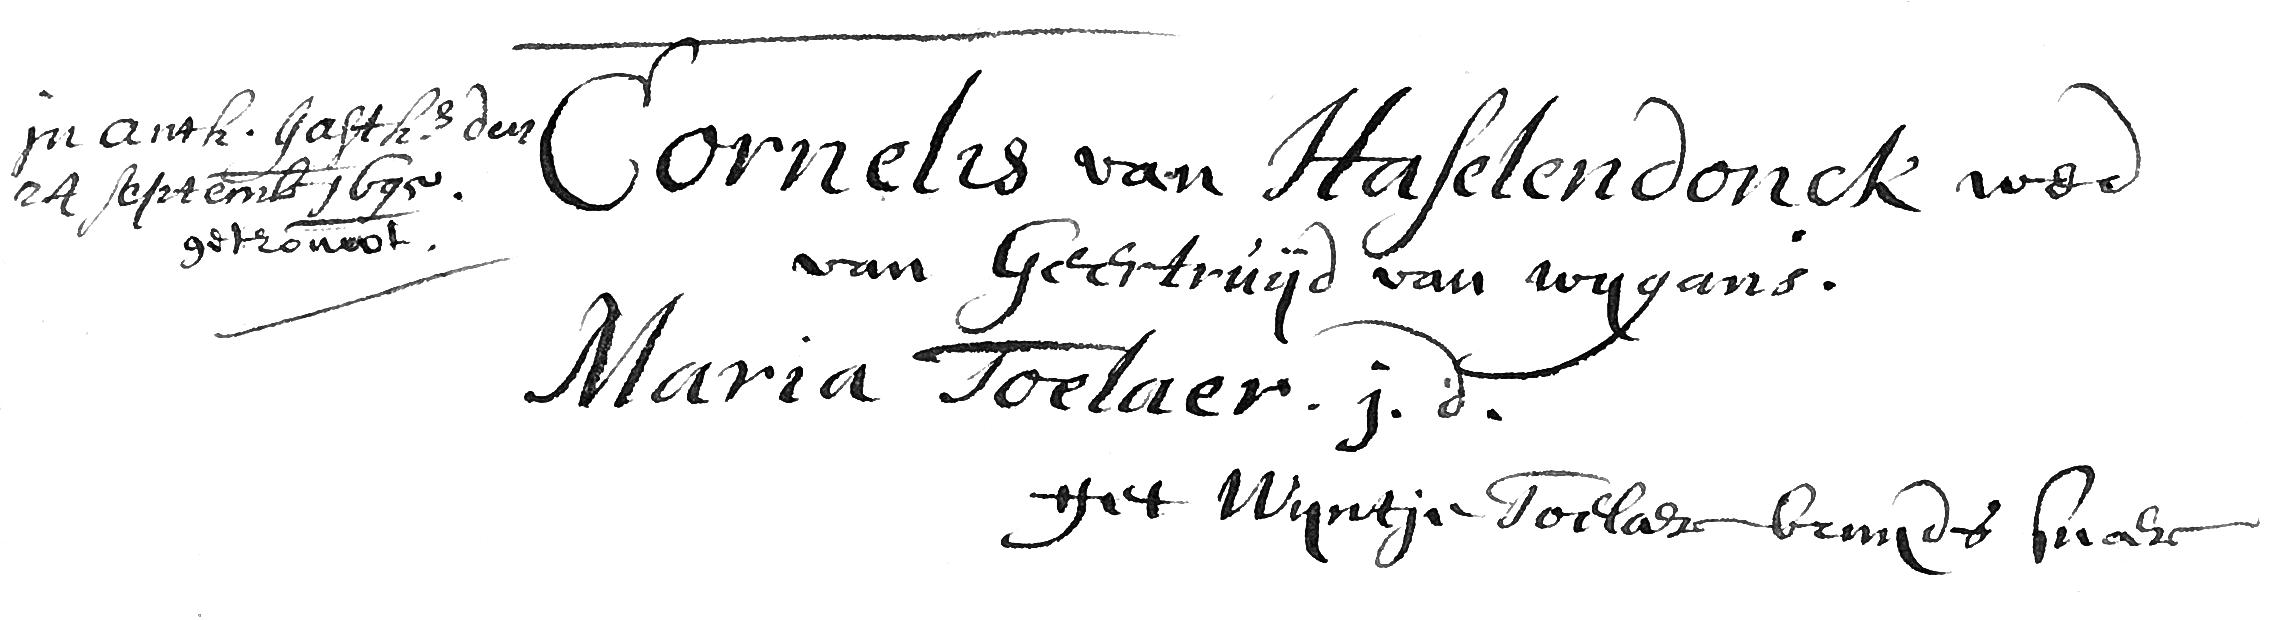 jn Anth. Gasth.s den
24 septemb 1695.
getrouwt.
Cornelis van Haselendonck wed
van Geertruijd van wygans.
Maria Toelaer. j. d.
Met Wijntje Toelaer bruijds suster